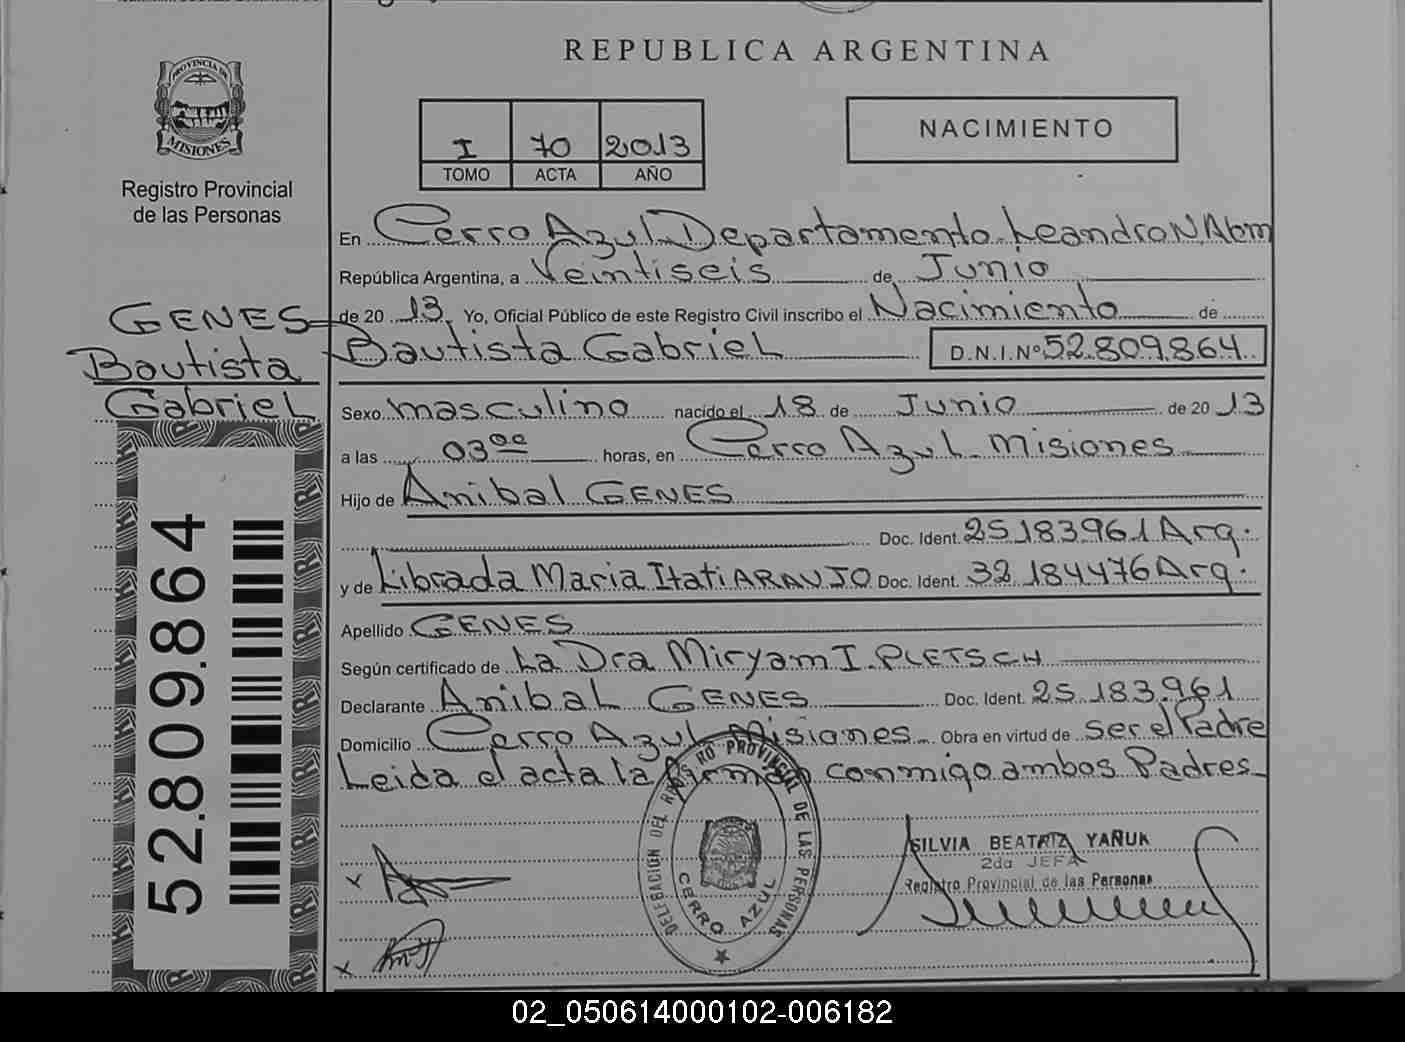 REPUBLICA ARGENTINA
PROVINCIA DE
MISIONES
Registro Provincial
de las Personas
I 70 2013
TOMO ACTA AÑO
NACIMIENTO
En Cerro Azul Departamento Leandro N. Alem
República Argentina, a Veintiseis de Junio
de 20 13 Yo, Oficial Público de este Registro Civil inscribo el Nacimiento de
Bautista Gabriel D.N.I.Nº 52.809.864
GENES
Bautista
Gabriel
Sexo masculino nacido el 18 de Junio de 20 13
a las 03 00 horas, en Cerro Azul Misiones
Hijo de Anibal GENES
Doc. Ident. 25.183.961 Arg.
y de Librada Maria Itati ARAUJO Doc. Ident. 32.184.476 Arg.
Apellido GENES
Según certificado de La Dra Miryam I. PLETSCH
Declarante Anibal GENES Doc. Ident. 25.183.961
Domicilio Cerro Azul Misiones Obra en virtud de ser el Padre
Leida el acta la firman conmigo ambos Padres
52.809.864
DELEGACION DEL REGISTRO PROVINCIAL DE LAS PERSONAS
CERRO AZUL
SILVIA BEATRIZ YAÑUK
2da JEFA
Registro Provincial de las Personas
02_050614000102-006182